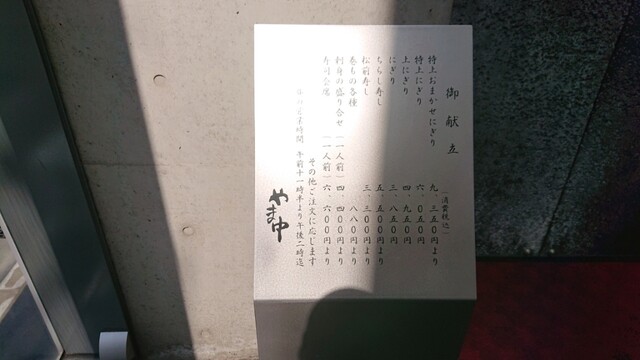 御献立
（消費税込）
特上おまかせにぎり 九、三五〇円より
特上にぎり 六、〇五〇円
上にぎり 四、九五〇円
にぎり 三、八五〇円
ちらし寿し 五、五〇〇円より
松前寿し 三、三〇〇円より
巻もの各種 八八〇円より
刺身の盛り合せ （一人前）四、四〇〇円より
寿司会席 （一人前）六、六〇〇円より
その他ご注文に応じます
営業時間 午前十一時半より午後二時迄
やま中